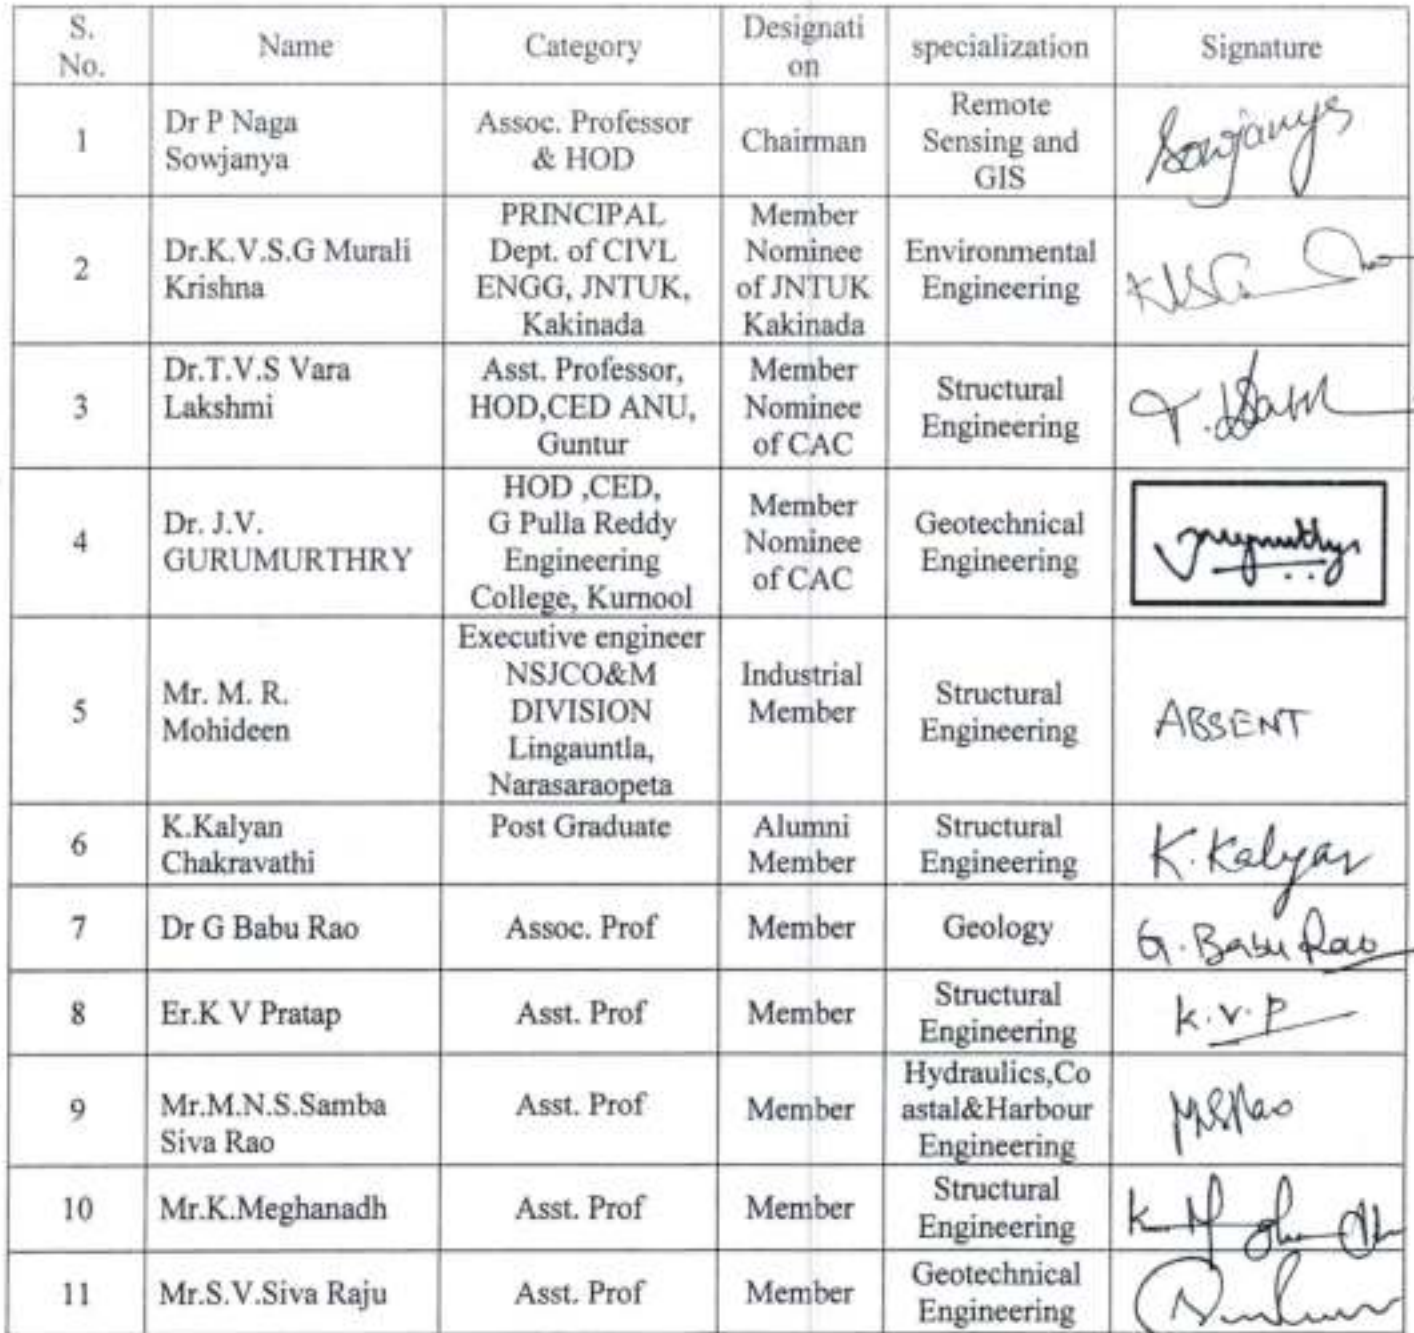 S. No.
Name
Category
Designati
on
specialization
Signature
1
Dr P Naga
Sowjanya
Assoc. Professor
& HOD
Chairman
Remote
Sensing and
GIS
Sowjanya
2
Dr.K.V.S.G Murali
Krishna
PRINCIPAL
Dept. of CIVL
ENGG, JNTUK,
Kakinada
Member
Nominee
of JNTUK
Kakinada
Environmental
Engineering
3
Dr.T.V.S Vara
Lakshmi
Asst. Professor,
HOD,CED ANU,
Guntur
Member
Nominee
of CAC
Structural
Engineering
4
Dr. J.V.
GURUMURTHRY
HOD ,CED,
G Pulla Reddy
Engineering
College, Kurnool
Member
Nominee
of CAC
Geotechnical
Engineering
5
Mr. M. R.
Mohideen
Executive engineer
NSJCO&M
DIVISION
Lingauntla,
Narasaraopeta
Industrial
Member
Structural
Engineering
ABSENT
6
K.Kalyan
Chakravathi
Post Graduate
Alumni
Member
Structural
Engineering
K. Kalyan
7
Dr G Babu Rao
Assoc. Prof
Member
Geology
G. Babu Rao
8
Er.K V Pratap
Asst. Prof
Member
Structural
Engineering
K.V.P
9
Mr.M.N.S.Samba
Siva Rao
Asst. Prof
Member
Hydraulics,Co
astal&Harbour
Engineering
10
Mr.K.Meghanadh
Asst. Prof
Member
Structural
Engineering
11
Mr.S.V.Siva Raju
Asst. Prof
Member
Geotechnical
Engineering